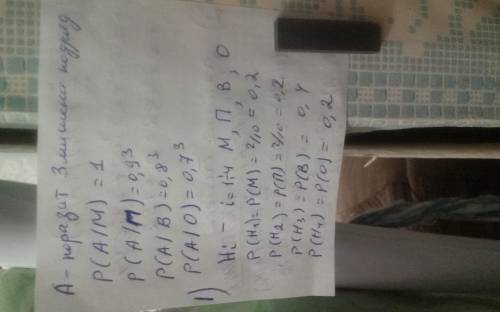 А - поразит 3 мишени подряд
P(A/M) = 1
P(A/П) = 0,9³
P(A/B) = 0,8³
P(A/O) = 0,7³
1) Hi - i=1÷4 М, П, В, О
P(H₁)=P(M)=2/10=0,2
P(H₂)=P(П)=2/10=0,2
P(H₃)=P(B)=0,4
P(H₄)=P(O)=0,2